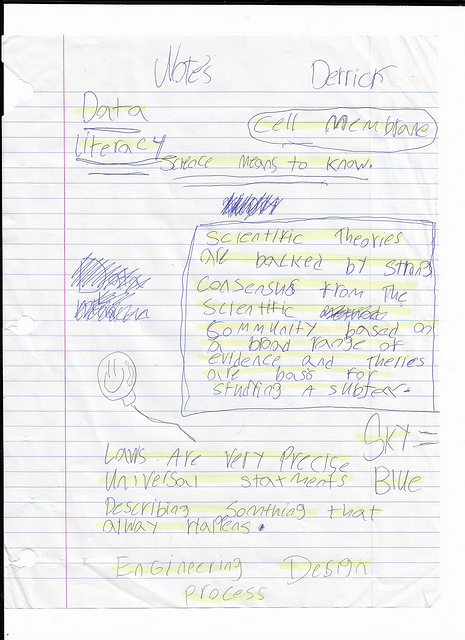 Note's
Derrick
Data
Literacy
Cell Membrane
Science means to know.
Scientific Theories
are backed by strong
consensus from The
Scientific
Community based on
a broad range of
evidence and Theries
are basis for
studing A subject.
Sky =
Blue
Laws Are very Precise
Universal statments
Describing Somthing that
alway Happens.
Engineering Design
process